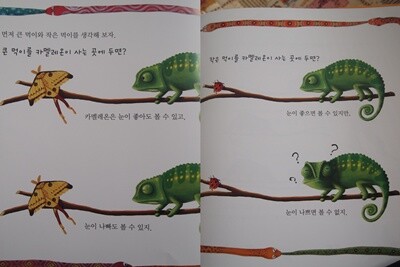 먼저 큰 먹이와 작은 먹이를 생각해 보자.
큰 먹이를 카멜레온이 사는 곳에 두면?
카멜레온은 눈이 좋아도 볼 수 있고,
눈이 나빠도 볼 수 있지.
작은 먹이를 카멜레온이 사는 곳에 두면?
눈이 좋으면 볼 수 있지만,
? ? ?
눈이 나쁘면 볼 수 없지.